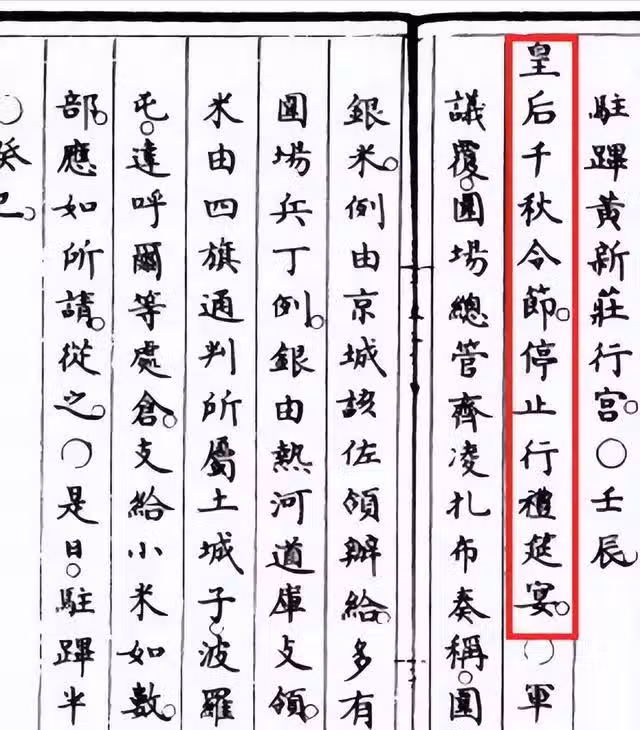 駐蹕黃新莊行宮。○壬辰
皇后千秋令節。停止行禮筵宴。○軍
議覆。圍場總管齊凌扎布奏稱。圍
銀米。例由京城該佐領辦給。多有
圍場兵丁例。銀由熱河道庫支領。
米由四旗通判所屬土城子。波羅
屯。違呼爾等處倉。支給小米如數。
部應如所請。從之。○是日。駐蹕半
○癸巳。